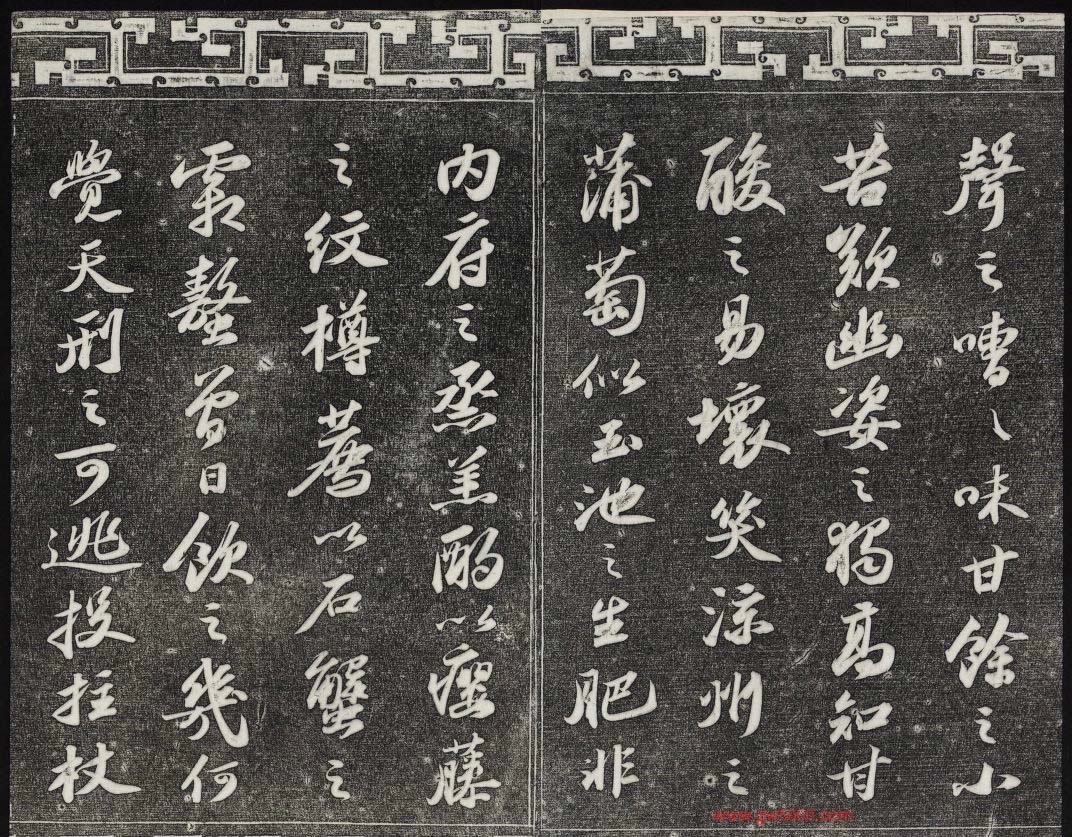 聲之嘈〻味甘餘之小
苦歎幽姿之獨高知甘
酸之易壞笑涼州之
蒲萄似玉池之生肥非
内府之烝羔酌以癭藤
之紋樽薦以石蟹之
霜螯曾日飲之幾何
覺天刑之可逃投拄杖